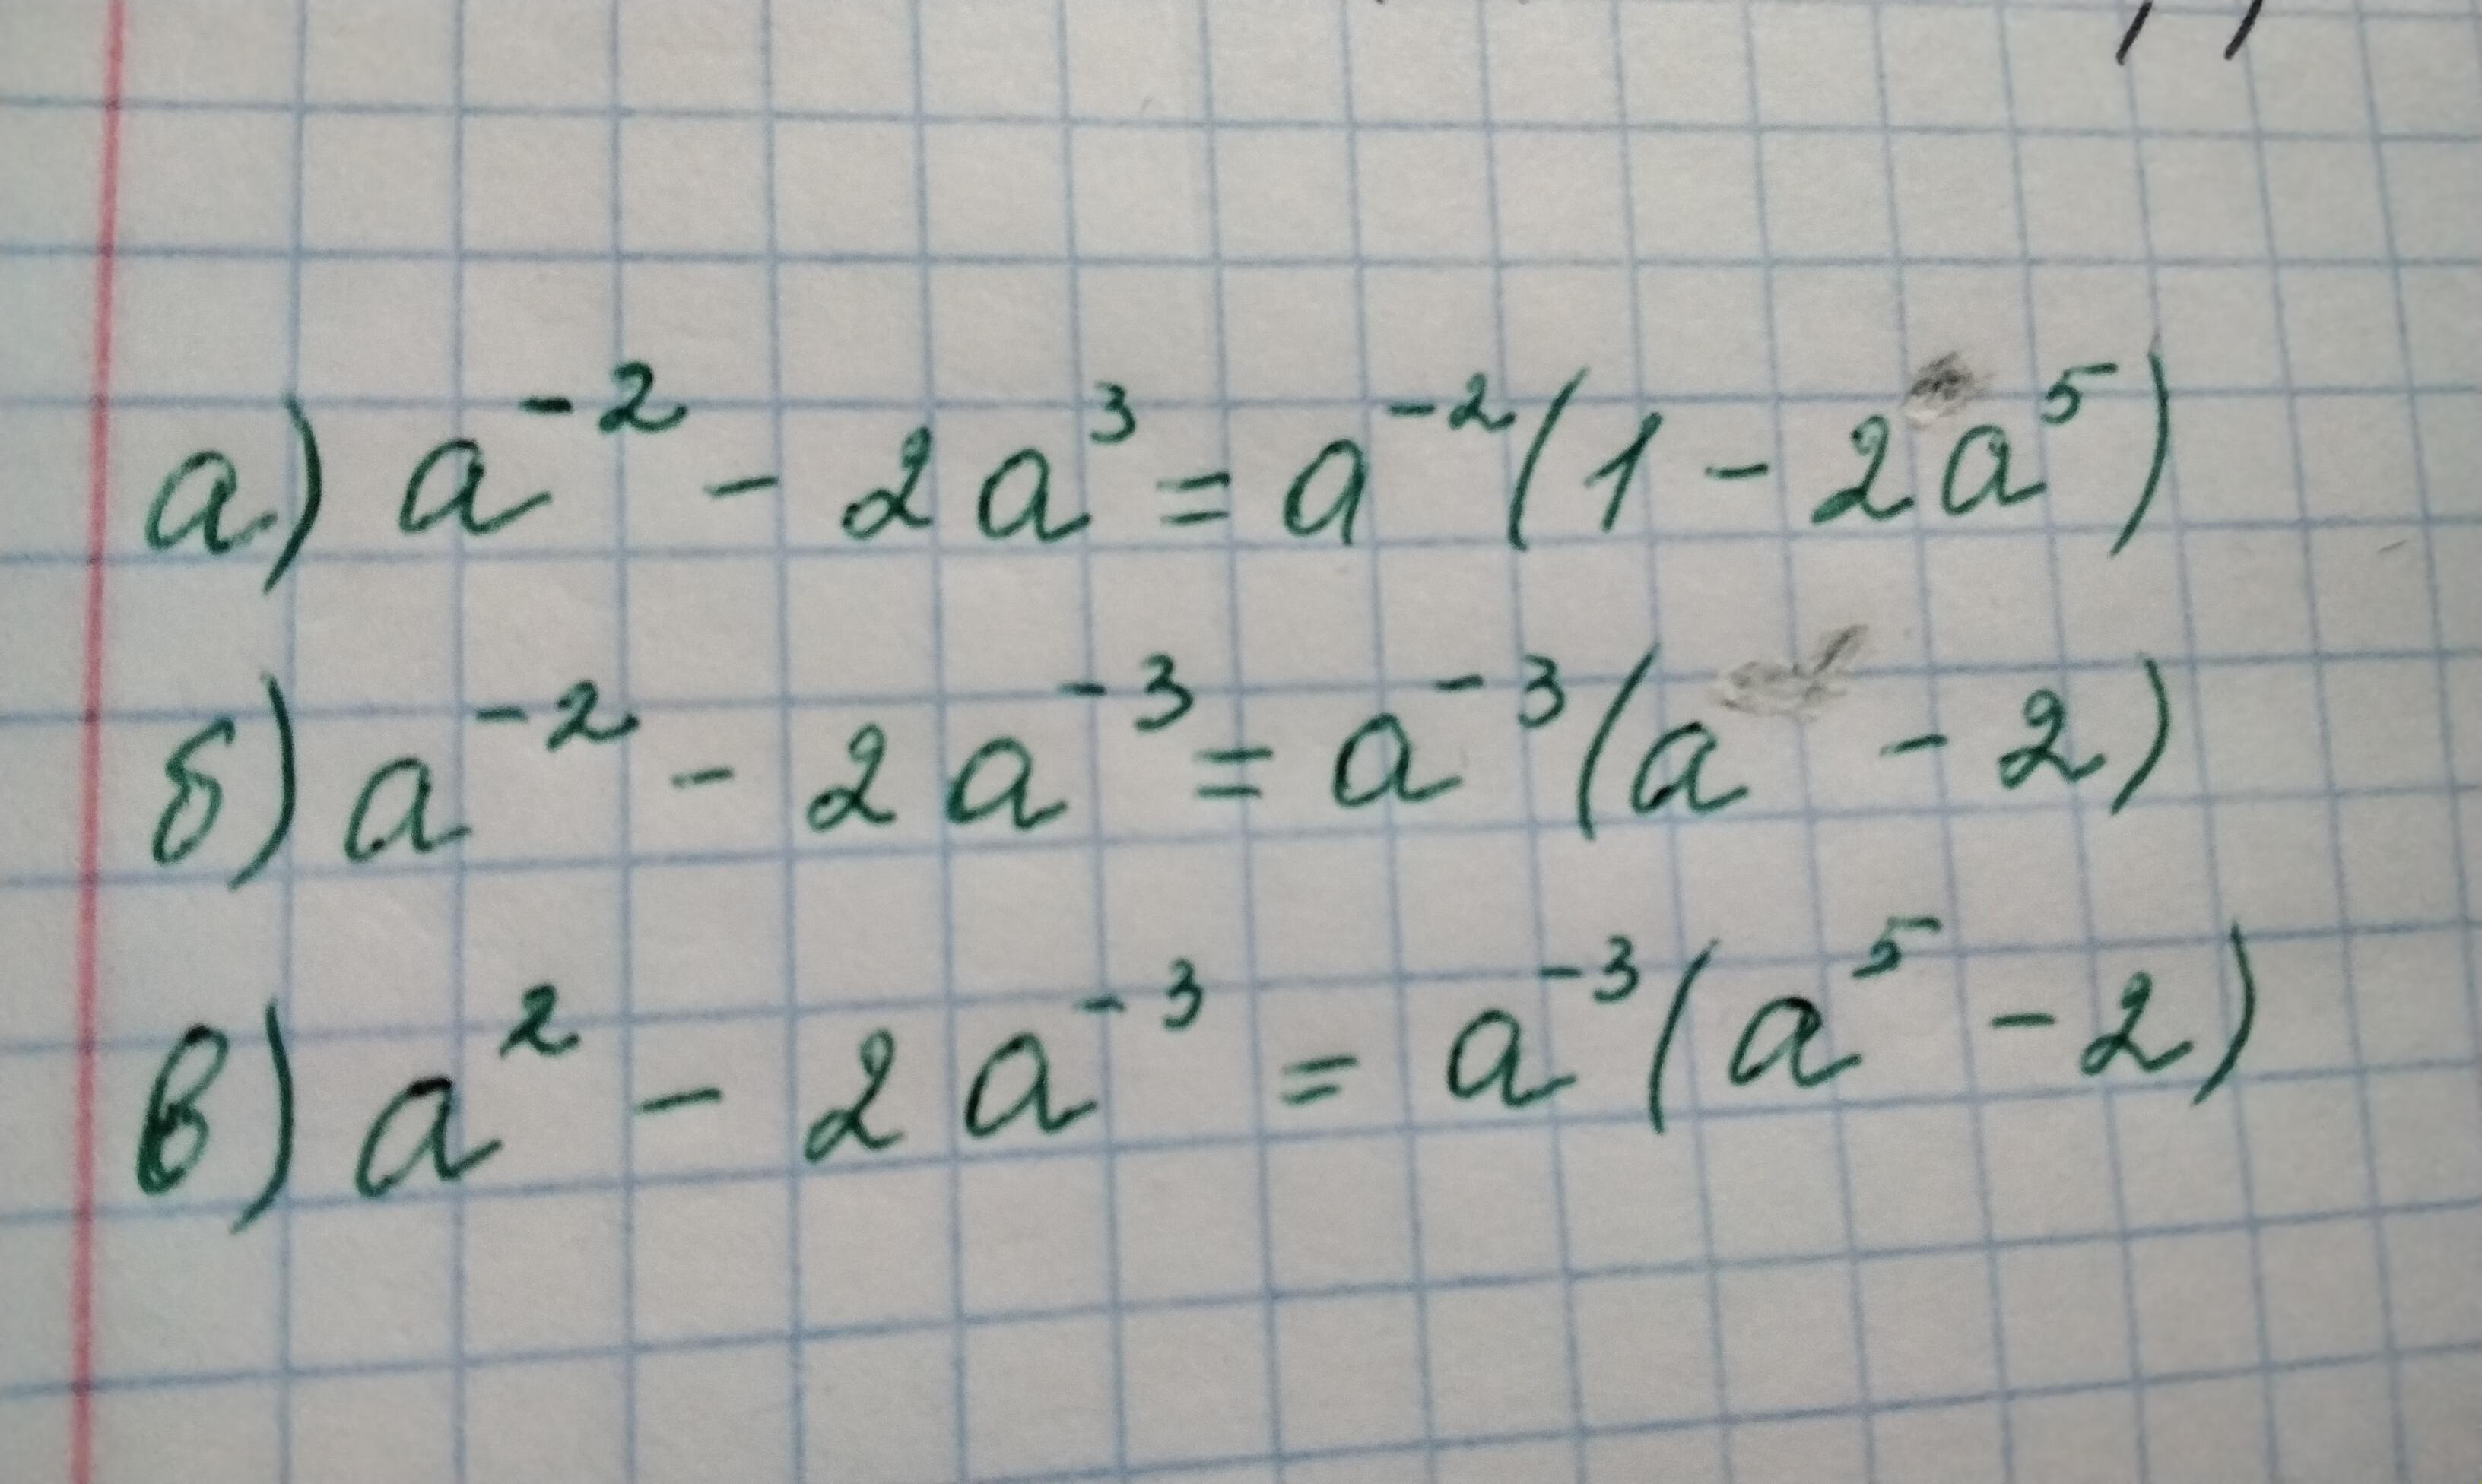 а) a⁻² - 2a³ = a⁻²(1 - 2a⁵)
б) a⁻² - 2a⁻³ = a⁻³(a - 2)
в) a² - 2a⁻³ = a⁻³(a⁵ - 2)